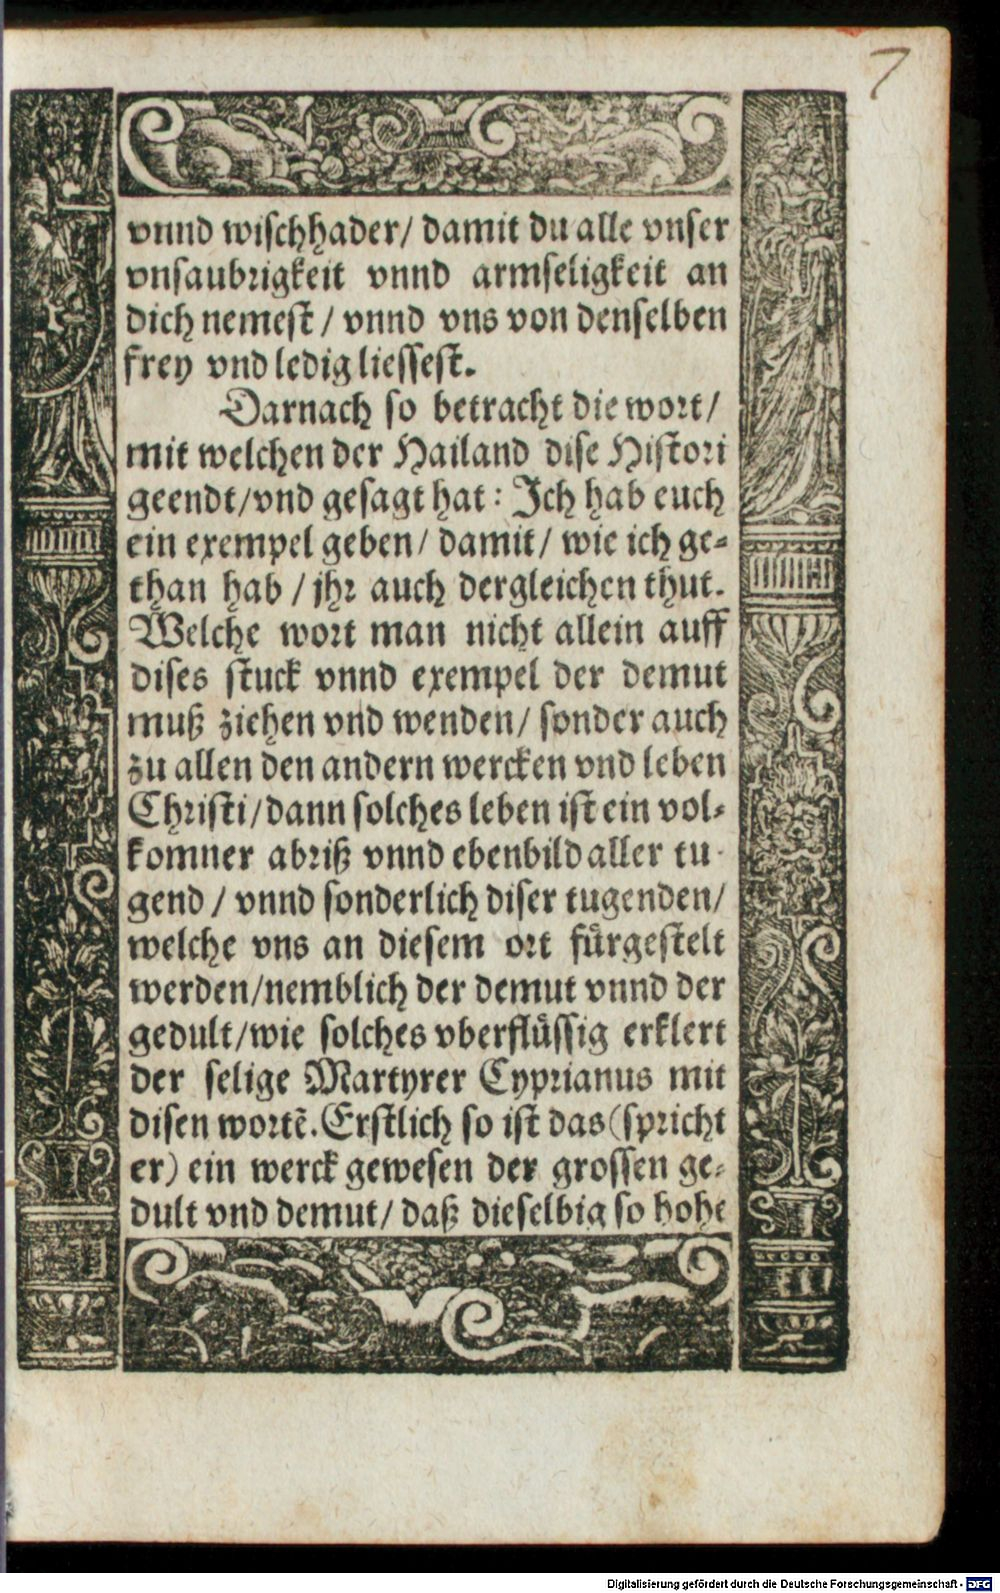 7
vnnd wischhader/ damit du alle vnser
vnsaubrigkeit vnnd armseligkeit an
dich nemest / vnnd vns von denselben
frey vnd ledig liessest.
Darnach so betracht die wort/
mit welchen der Hailand dise Histori
geendt/vnd gesagt hat: Ich hab euch
ein exempel geben/ damit/ wie ich ge-
than hab / jhr auch dergleichen thut.
Welche wort man nicht allein auff
dises stuck vnnd exempel der demut
muß ziehen vnd wenden/ sonder auch
zu allen den andern wercken vnd leben
Christi/dann solches leben ist ein vol-
komner abriß vnnd ebenbild aller tu-
gend / vnnd sonderlich diser tugenden/
welche vns an diesem ort fürgestelt
werden/nemblich der demut vnnd der
gedult/wie solches vberflüssig erklert
der selige Martyrer Cyprianus mit
disen wortẽ. Erstlich so ist das (spricht
er) ein werck gewesen der grossen ge-
dult vnd demut/ daß dieselbig so hohe
Digitalisierung gefördert durch die Deutsche Forschungsgemeinschaft - DFG